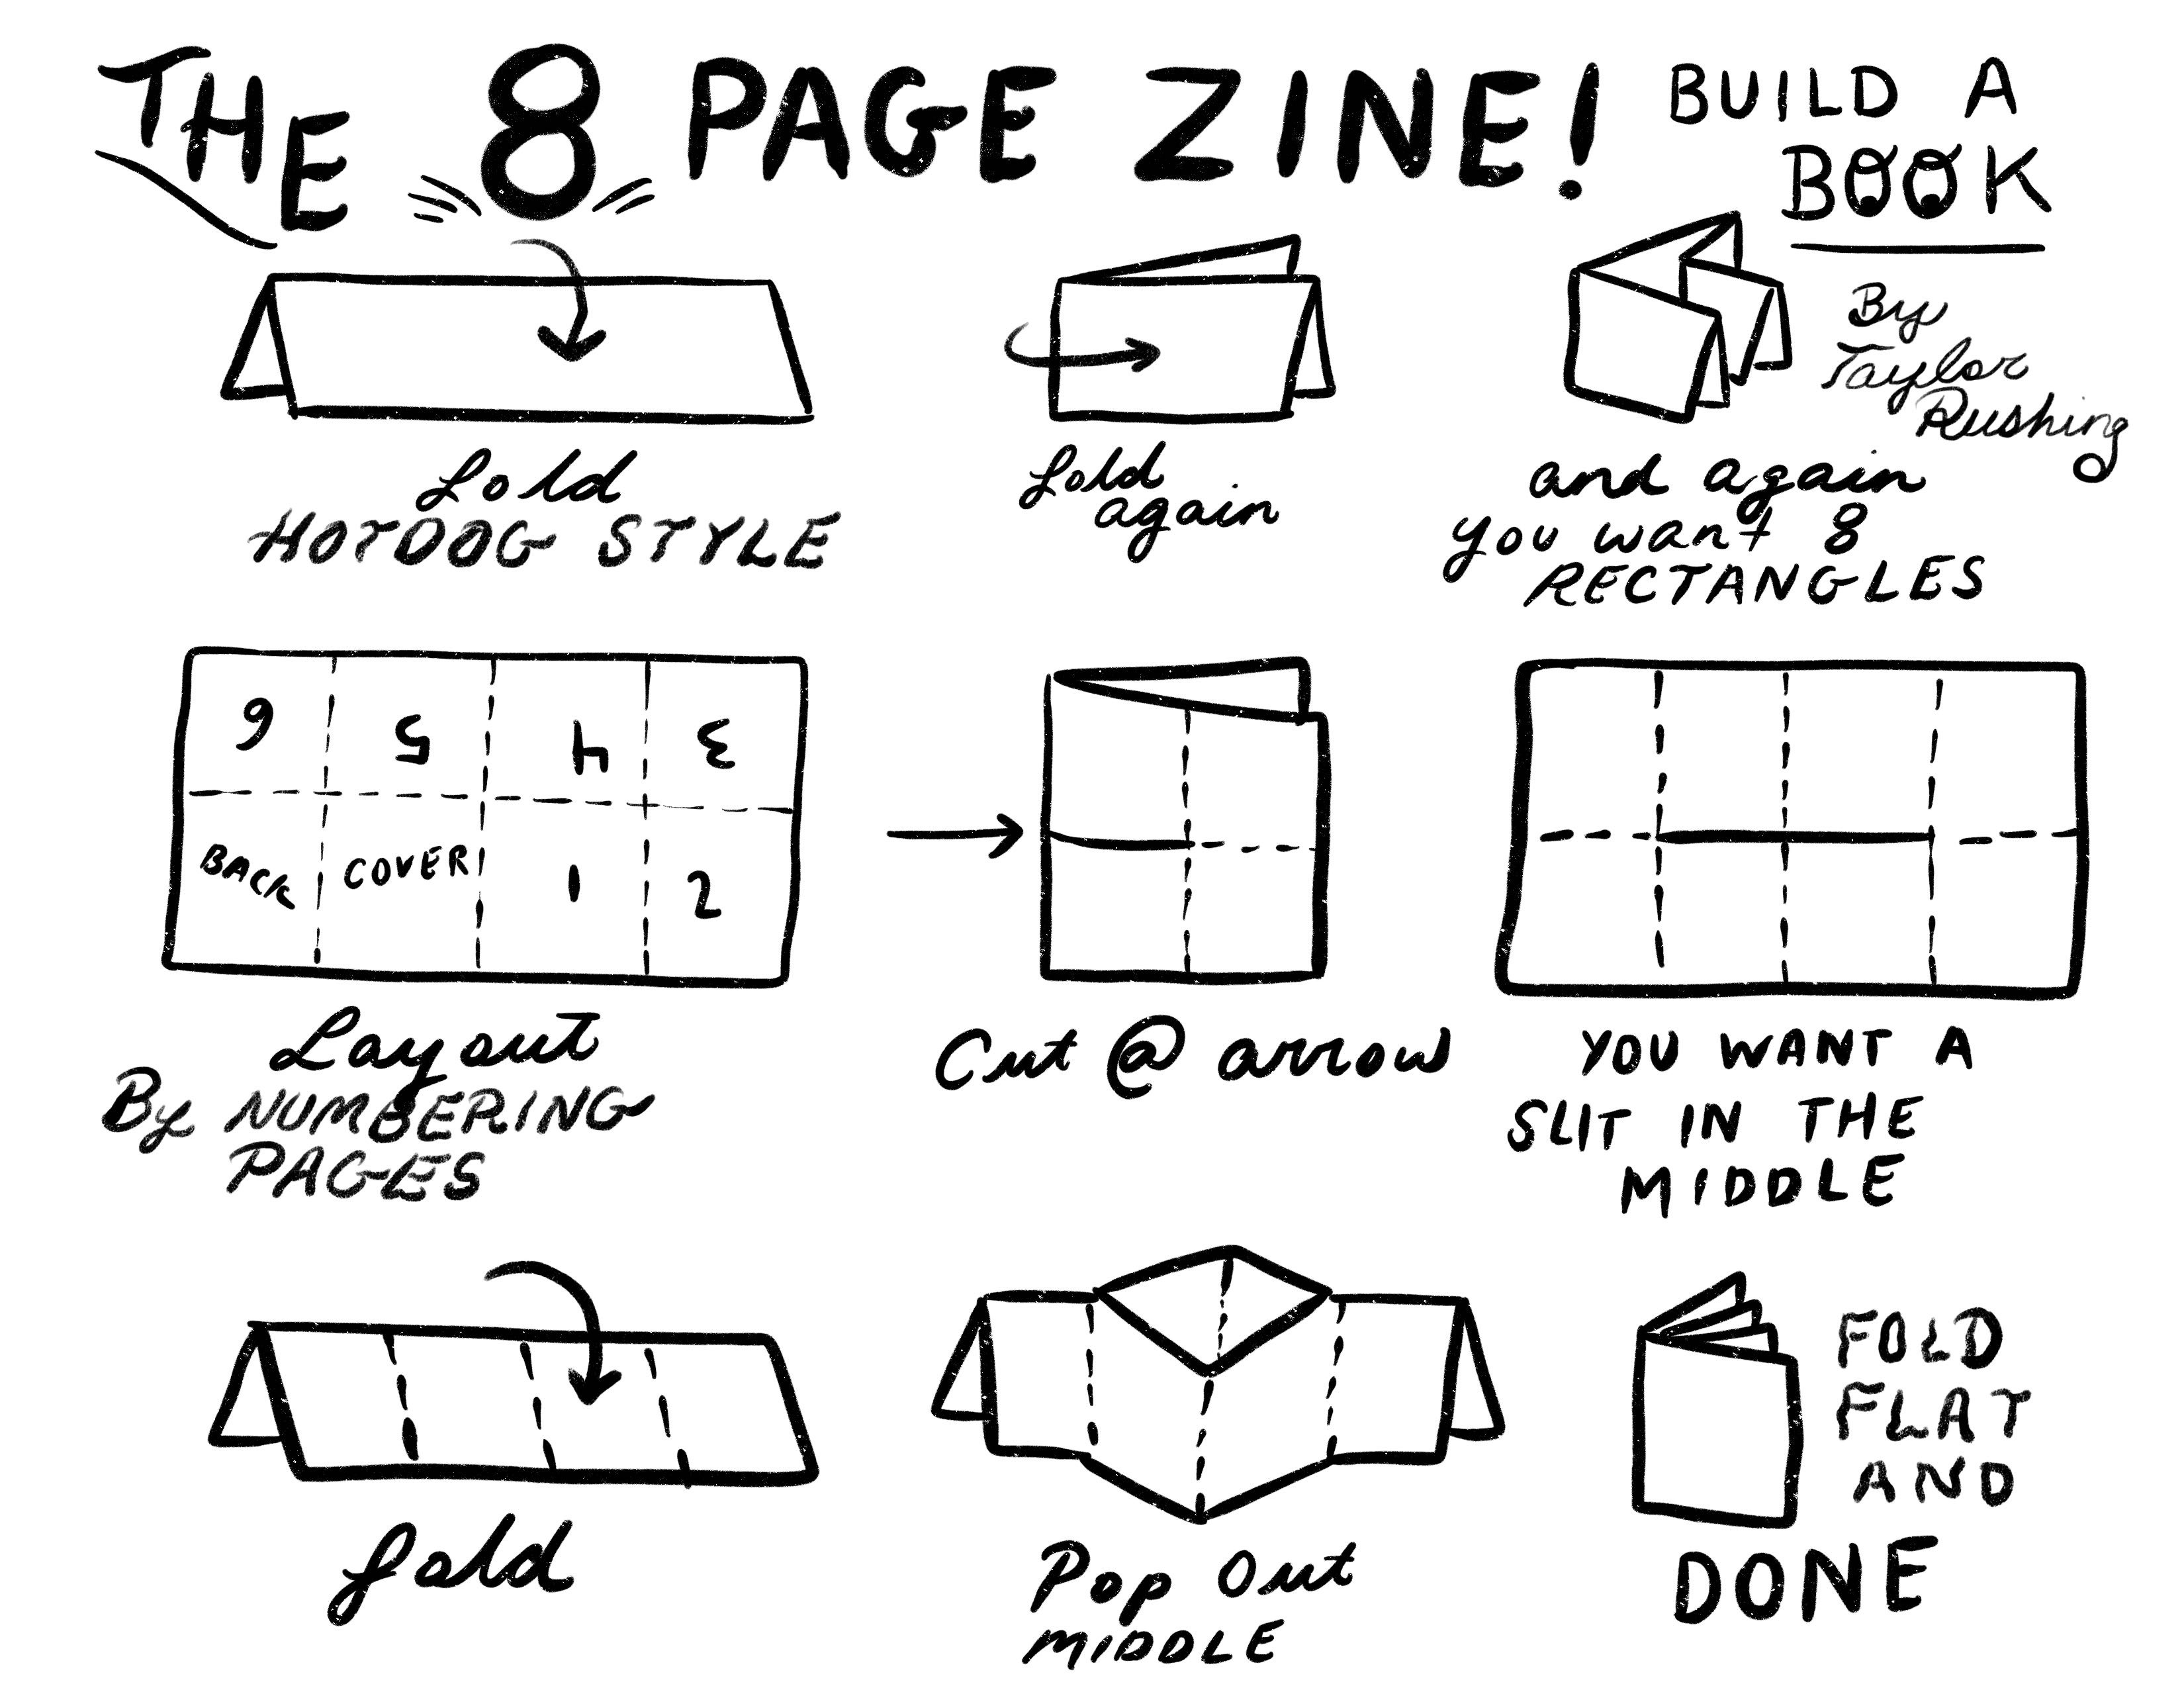 THE 8 PAGE ZINE!
BUILD A
BOOK
By
Taylor
Rushing
fold
HOTDOG STYLE
fold
again
and again
you want 8
RECTANGLES
6 5 4 3
BACK COVER 1 2
Layout
By NUMBERING
PAGES
Cut @ arrow
YOU WANT A
SLIT IN THE
MIDDLE
fold
Pop Out
MIDDLE
FOLD
FLAT
AND
DONE